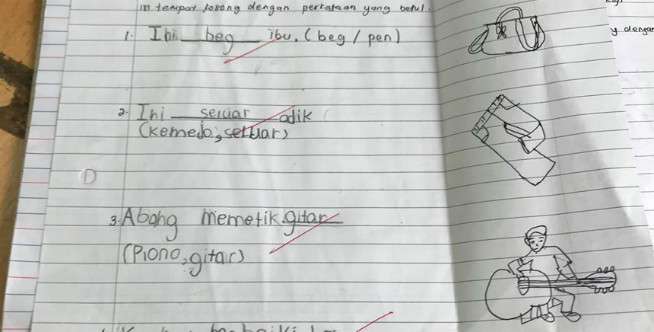 isi tempat kosong dengan perkataan yang betul.
1. Ini beg ibu. (beg / pen)
2. Ini seluar adik
(kemeja, seluar)
D
3. Abang memetik gitar
(Piono, gitar)
y dengan